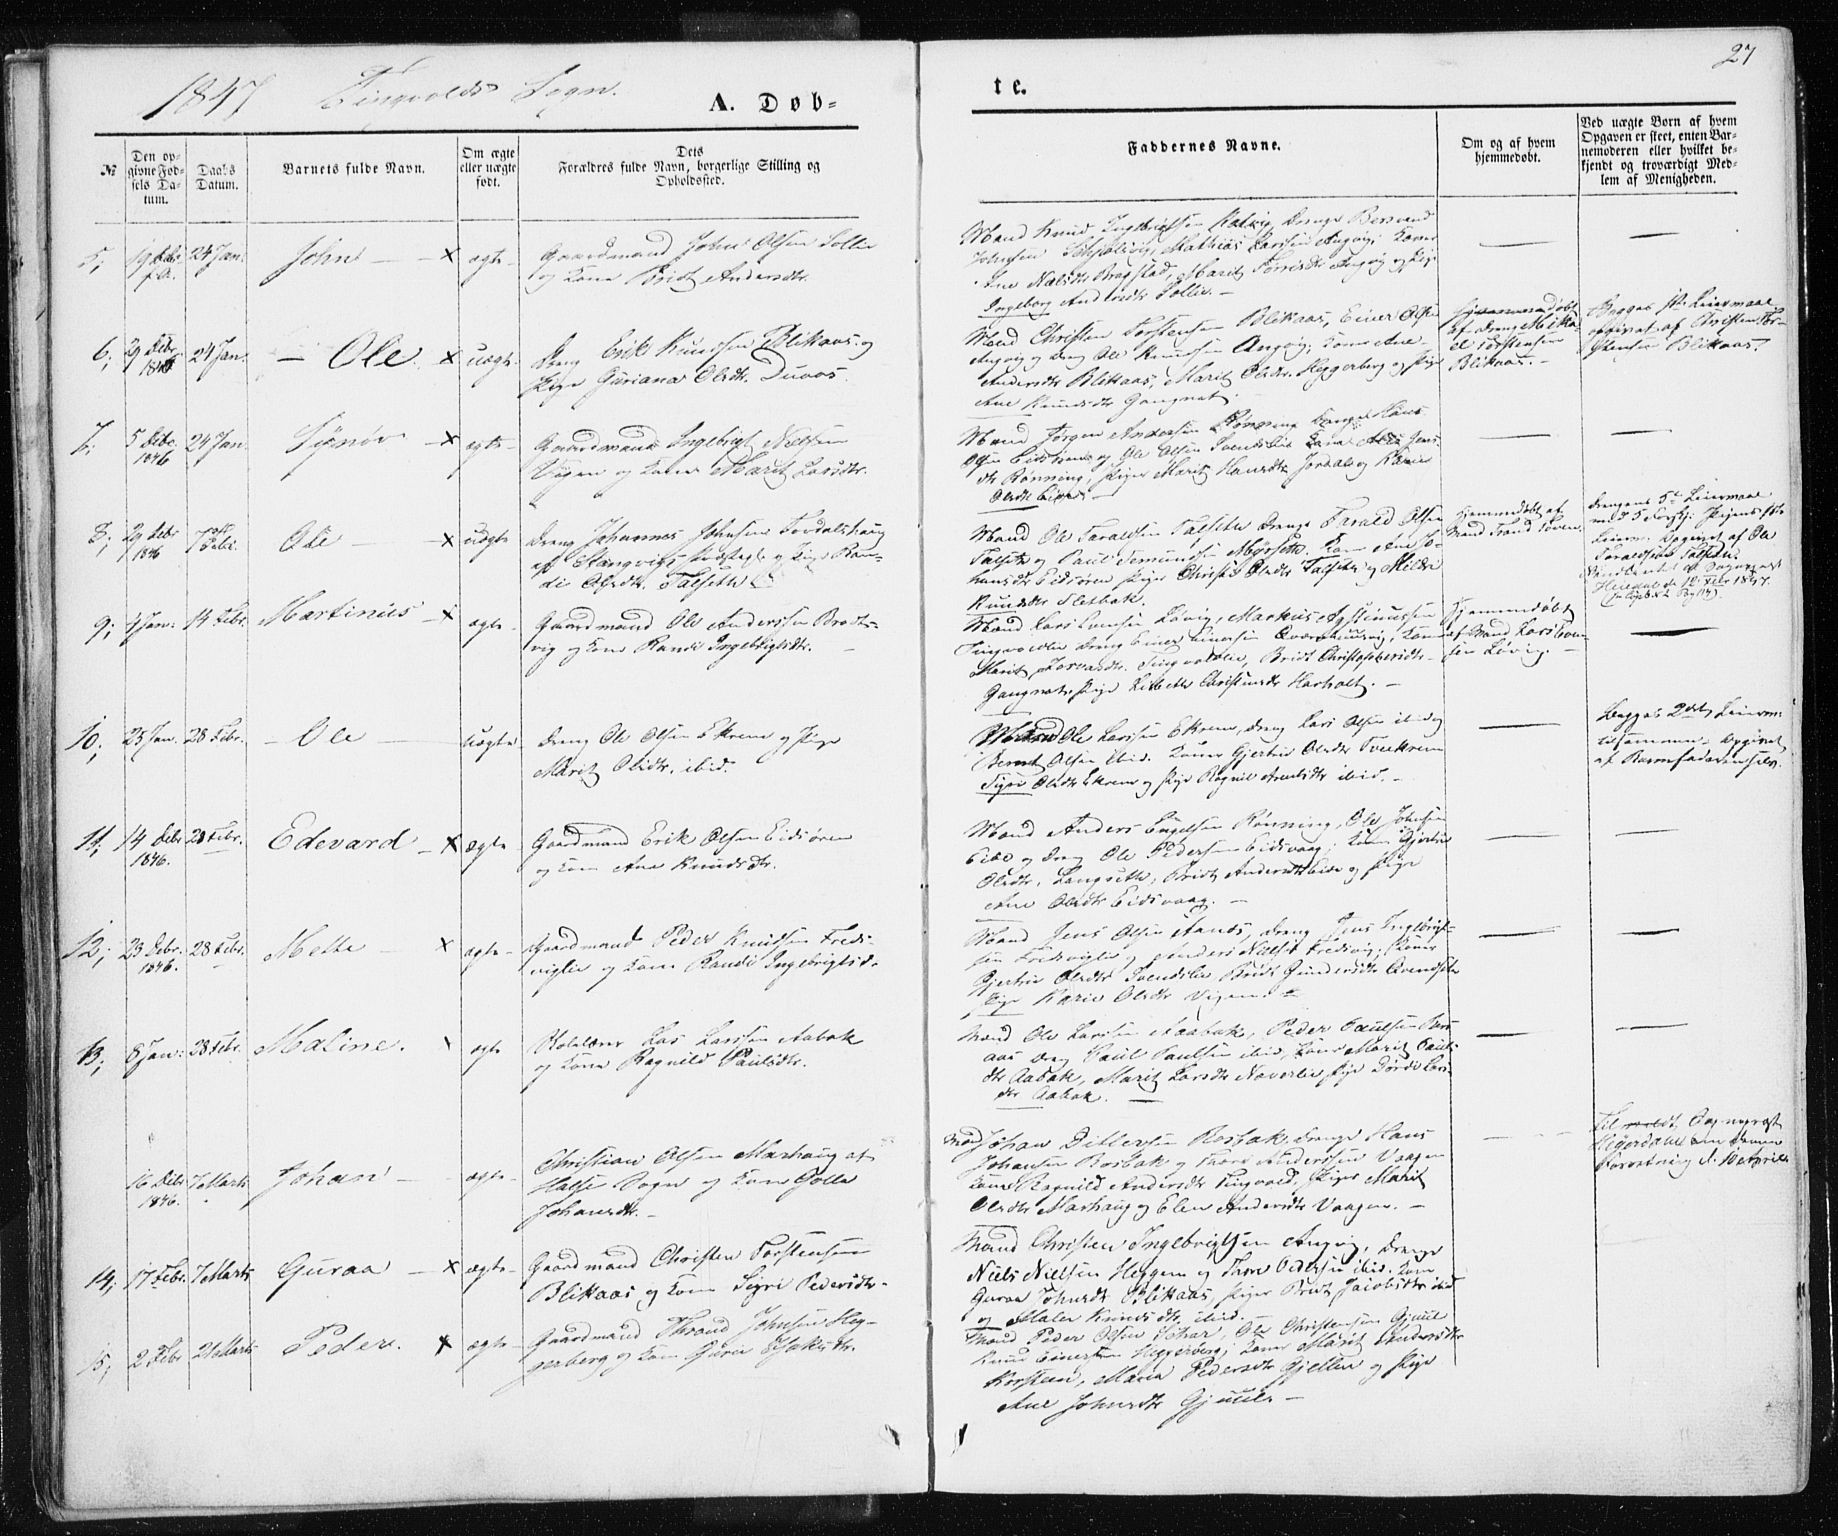 1847 Tingvolds Sogn.
A. Døb-
te.
27
№
Den op-
givne Fød-
sels Da-
tum.
Daabs
Datum.
Barnets fulde Navn.
Om ægte
eller uægte
født.
Dets
Forældres fulde Navn, borgerlige Stilling og
Opholdssted.
Faddernes Navne.
Om og af hvem
hjemmedøbt.
Ved uægte Børn af hvem
Opgaven er skeet, enten Bar-
nemoderen eller hvilket be-
kjendt og troværdigt Med-
lem af Menigheden.
5, 19 Debr f.A. 24 Jan. John – – x ægte –
Gaardmand John Olsen Sollie
og Kone Brit Andersdtr.
Mand Knud
Johnsen Mathias Larsen Angvig, Koner
Ane Marit Angvig og Pige
Ingeborg Andersdtr Sollie. –
6, 29 Debr 1846 24 Jan. – Ole x uægte
Dreng Erik Knudsen Blikaas og
Pige Guriana Olsdtr. Duaas.
Mænd Christen Torstensen Blikaas, Einer Olsen
Angvig og Dreng Ole Knudsen Angvig; Koner Ane
Andersdtr Blikaas, Marit Olsdtr. Heggerberg og Pige
Ane Knudsdtr Gangnat.
Hjemmedøbt
af Dreng Mika-
el Torstensen
Blikaas. –
Begges 1ste Leiermaal
opgivet af Christen Tor-
stensen Blikaas.
7, 5 Debr. 1846 24 Jan Synøv – x ægte –
Gaardmand Ingebrigt Nielsen
Vigen og Kone Marit Larsdtr.
Mænd Jørgen Andersen Rønning
Olsen og Ole Olsen
dtr Rønning, Piger Marit Hansdtr Jordal og Karen
Olsdtr
8, 29 Debr 1846 7 Febr. Ole – x uægte
Dreng Johannes Johnsen Tordalshaug
af Stangvigs Præstegjeld og Pige Ran-
di Olsdtr. Talseth.
Mænd Ole Taraldsen Talseth Drenge Tarald Olsen
Talseth og Paul Myrseth. Kone Ane Jo-
hansdtr Eidsøren Piger Christi Olsdtr Talseth og Mildri
Knudsdtr Sletbak.
Hjemmedøbt af
Mand Trond
Drengens 5te Leiermaal
Pigens 1ste
Leierm. Opgivet af Ole
Taraldsen Talseth.
1847.
9, 4 Jan: 14 Febr. Martinus – x ægte –
Gaardmand Ole Andersen Brods-
vig og Kone Randi Ingebrigtsdtr. –
Mænd Lars Løvig, Markus
Tingvold Dreng Einer Einersen Kone
Marit Tingvold, Brit Christophersdtr
Gangnat, Pige Lisbeth Christensdtr Harholt. –
Hjemmedøbt
af Mand Lars
sen Løvig. –
10, 25 Jan. 28 Febr. – Ole – uægte
Dreng Ole Olsen Ekrem og Pige
Marit Olsdtr. ibid.
Mænd Ole Larsen Ekrem, Dreng Lars Olsen ibid og
Bernt Olsen ibid. Koner Gjertru Olsdtr Tverekrem
Sigri Olsdtr Ekrem og Pige Ragnil Arntsdtr ibid. –
Begges 2det Leierm:
tilsammen. Opgivet
af Barnefaderen selv.
11, 14 Debr 1846. 28 Febr. Edevard – x ægte
Gaardmand Erik Olsen Eidsøren
og Kone Ane Knudsdtr.
Mænd Anders Engelsen Rønning, Ole Johnsen
Eide og Dreng Ole Pedersen Eidsvaag; Koner Gjertru
Olsdtr. Langseth, Brit Andersdtr Eide og Pige
Ane Olsdtr Eidsvaag. –
12, 23 Debr. 1846. 28 Febr. Mette – x ægte –
Gaardmand Peder Knudsen Freds-
viglie og Kone Randi Ingebrigtsd.
Mænd Jens Olsen Aanes, Dreng Jens Ingebrigt-
sen Fredsviglie og Anders Nielsen Fredsvig, Koner
Gjertru Olsdtr Svendslie Brit Gundersdtr
Pige Karen Olsdtr Vigen.
13, 8 Jan: 28 Febr. Maline. x ægte
Lars Larsen Aabak
og Kone Ragnild Paulsdtr.
Mænd Ole Larsen Aabak, Peder Paulsen
aas Dreng Paul Paulsen ibid, Koner Marit Pauls-
dtr Aabak, Marit Larsdtr Naverlie Pige Dordi Lars-
dtr Aabak. –
16 Debr 1846. 7 Marts Johan – ægte –
Christian Olsen Marhaug af
Halse Sogn og Kone Golla
Johansdtr. –
Mænd Johan Ditlefsen Rosbak, Drenge Hans
Johansen Bosbak og Thore Andersen Vaagen
Kone Ragnild Andersdtr Tingvold, Piger Marit
Olsdtr Marhaug og Elen Andersdtr Vaagen. –
Tilmeldt Sognepræst
om denne
Forretning d. 10 April.
14, 17 Febr. 7 Marts Guraa – x ægte –
Gaardmand Christen Torstensen
Blikaas og Kone Sigri Pedersdtr –
Mænd Christen Ingebrigtsen Angvig, Drenge
Niels Nielsen Heggem og Thore Pedersen ibid. Kone
Guraa Johnsdtr Blikaas, Piger Brit Jacobsdtr ibid
og Malen Knudsdtr, ibid.
15, 2 Febr 21 Marts Peder. x ægte –
Gaardmand Thrond Johnsen Heg-
gerberg og Kone Guru Isaksdtr.
Mænd Peder Olsen Ole Christensen Gjuul
Knud Einersen Heggerberg; Koner Marit Andersdtr
Korsteen, Maria Pedersdtr Gjellen og Pige
Ane Johnsdtr Gjuul. –